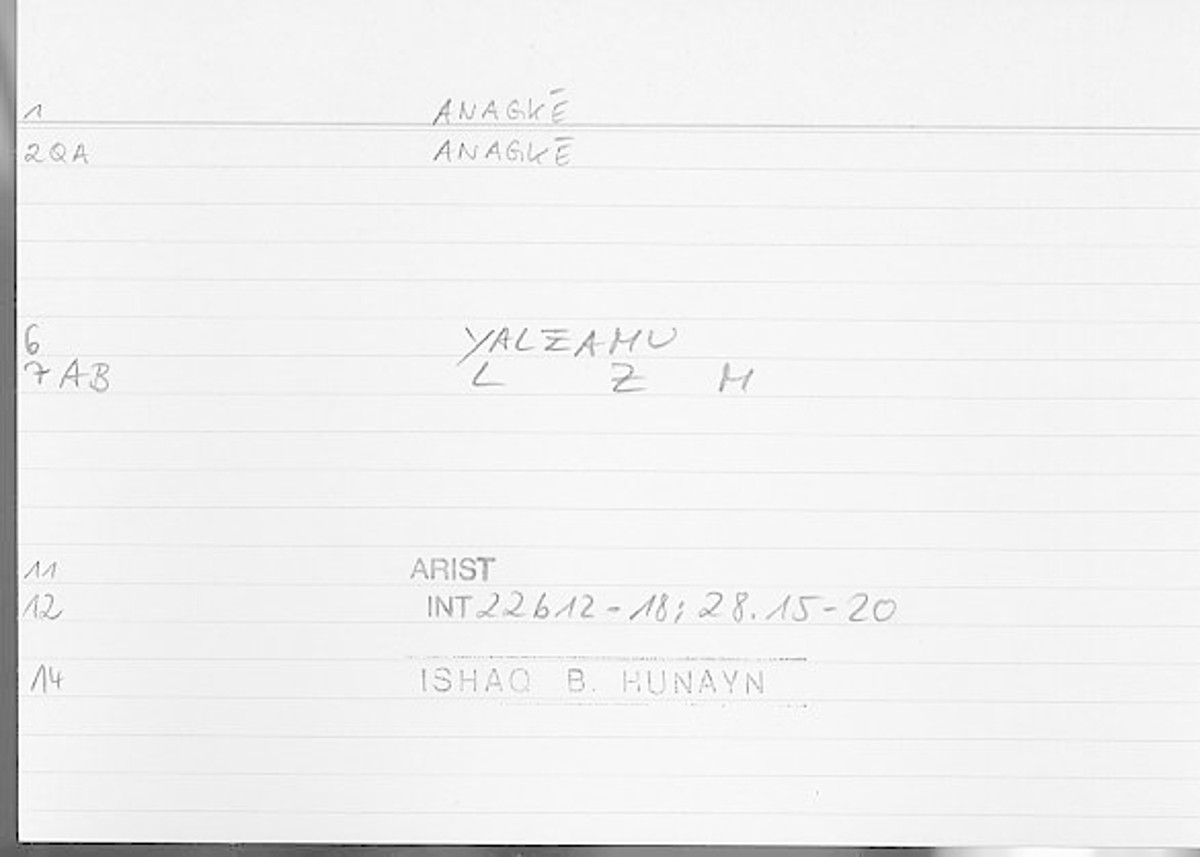 1 ANAGKĒ
2QA ANAGKĒ
6 YALZAMU
7 AB L Z M
11 ARIST
12 INT 22b12-18; 28.15-20
14 ISHAQ B. HUNAYN